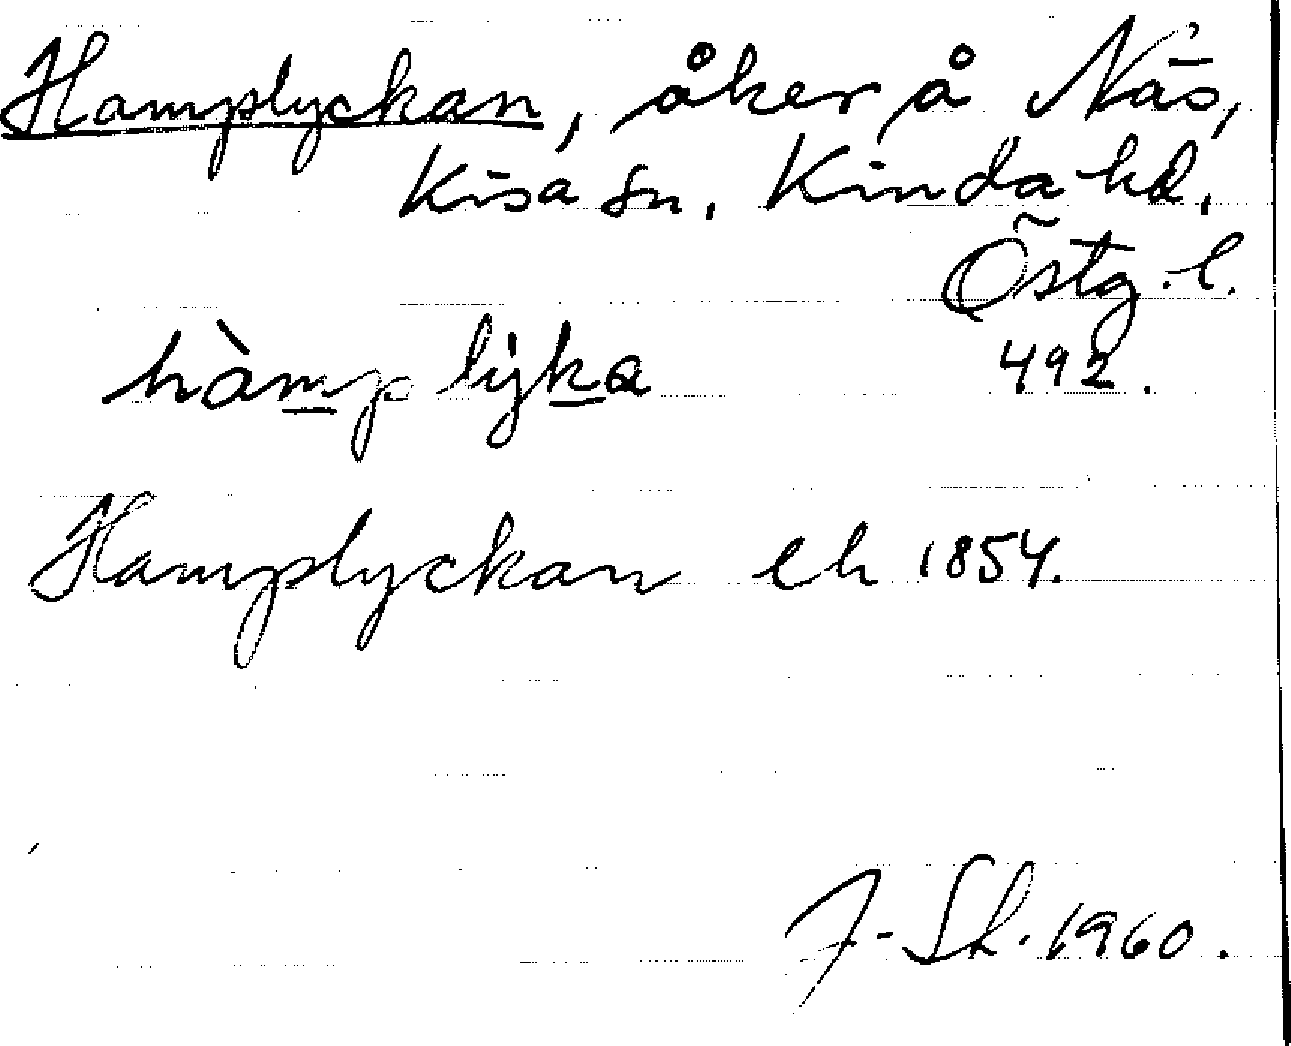 Hamplyckan, åker å Näs,
Kisa sn. Kinda hd.
Östg. l.
hàmp lyka 492.
Hamplyckan eh 1854.
F-Sk. 1960.